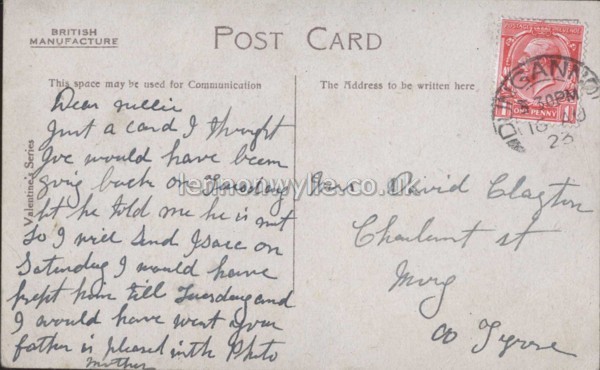 BRITISH
MANUFACTURE
POST CARD
This space may be used for Communication
The Address to be written here
Valentine's Series
Dear Nellie
Just a card I thought
Joe would have been
going back on Tuesday
but he told me he is not
So I will send Isaac on
Saturday I would have
kept him till Tuesday and
I would have went your
father is pleased with Photo
Mother
David Clayton
Charlemont st
Moy
Co Tyrone
DUNGANNON
30PM
23
ONE PENNY
1
1
lennonwylie.co.uk